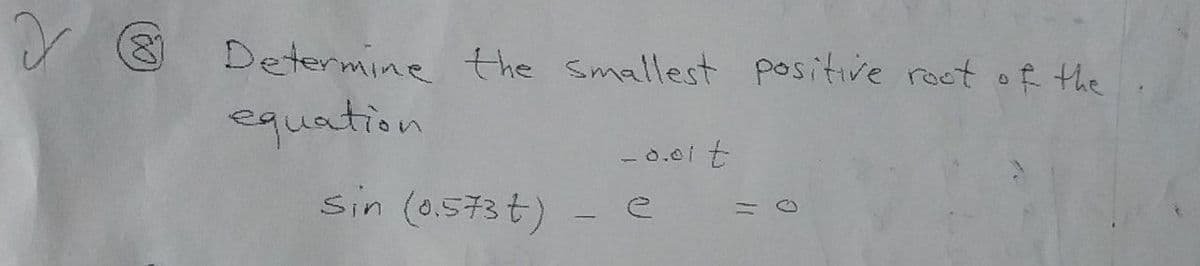 ⑧ Determine the smallest positive root of the
equation
sin (0.573t) - e^{-0.01t} = 0